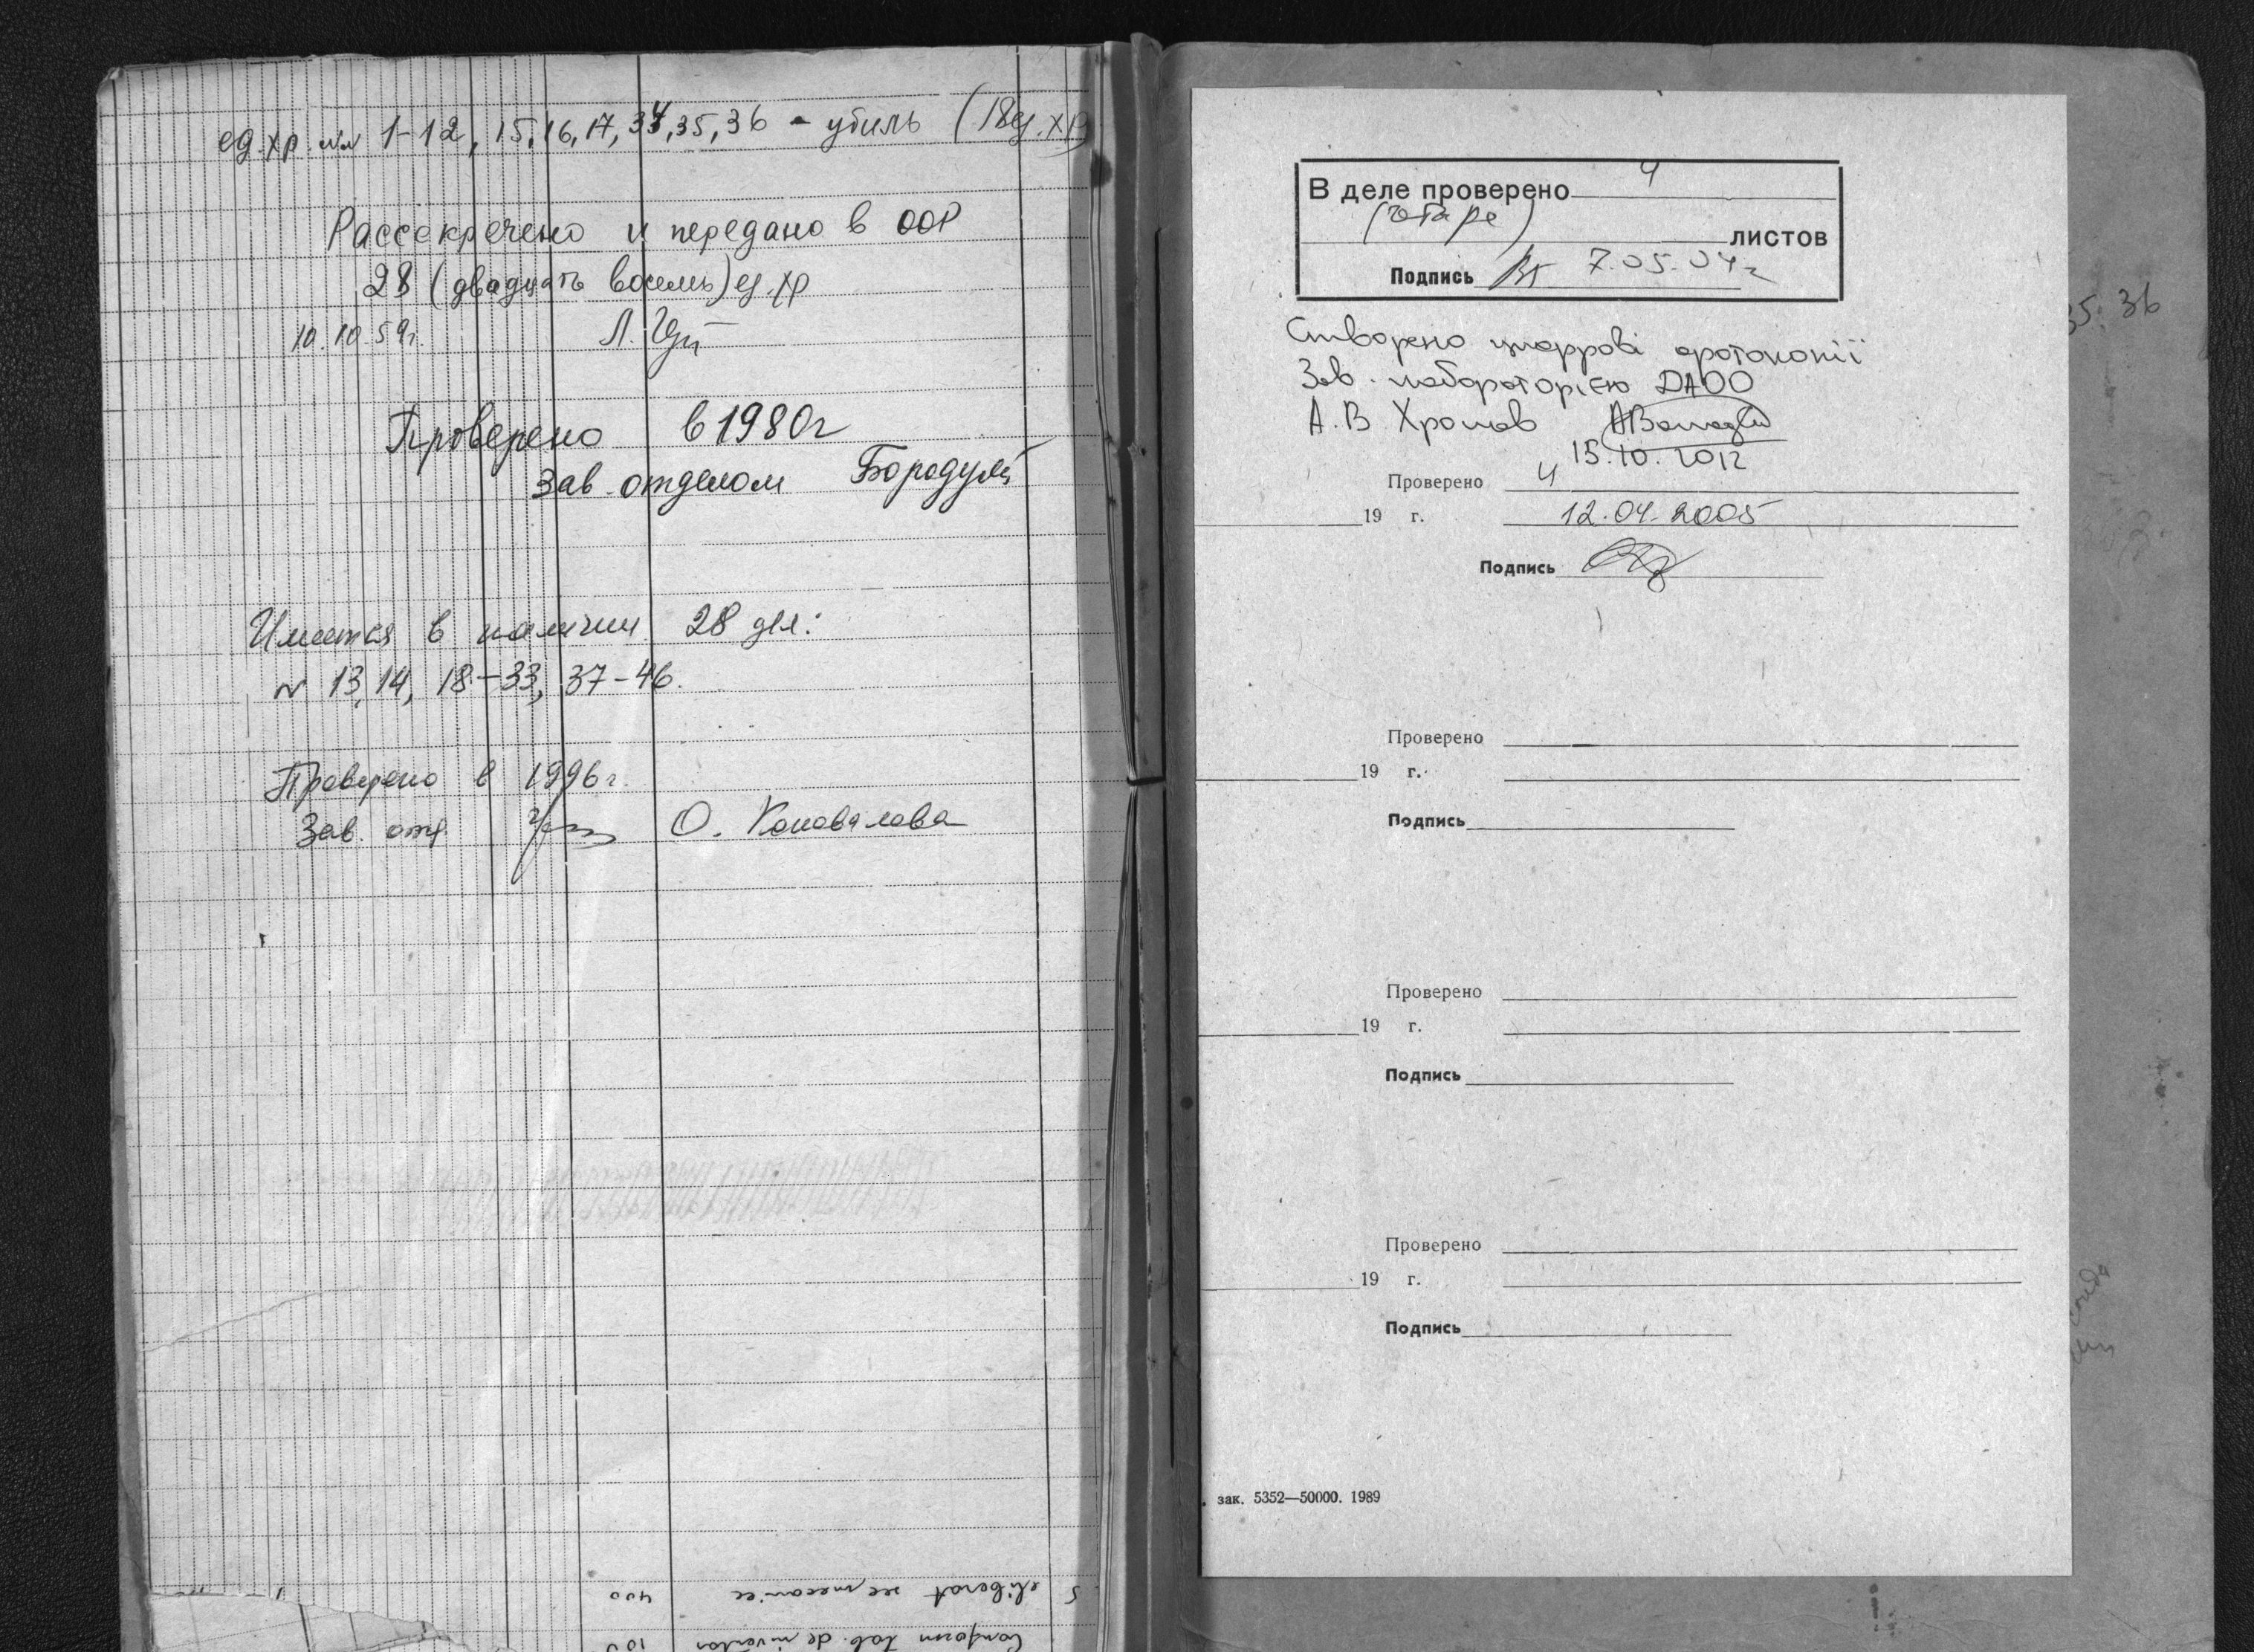 ед.хр. №№ 1-12, 15, 16, 17, 34, 35, 36 - убыль (18 ед.хр)
Рассекречено и передано в ООР
28 (двадцать восемь) ед.хр
10.10.59г.
Проверено в 1980г
Зав. отделом
Имеется в наличии 28 дел:
№ 13, 14, 18-33, 37-46.
Проверено в 1996г.
Зав. отд. О. Коновалова
5 eliberat
400
Conform tab. de inventar
100
В деле проверено 4
(чотыре) листов
Подпись 7.05.04г
Створено цифрові фотокопії
Зав. лабораторією ДАОО
А.В Хромов
15.10.2012
Проверено 4
19 г. 12.04.2005
Подпись
Проверено
19 г.
Подпись
Проверено
19 г.
Подпись
Проверено
19 г.
Подпись
зак. 5352—50000. 1989
35, 36